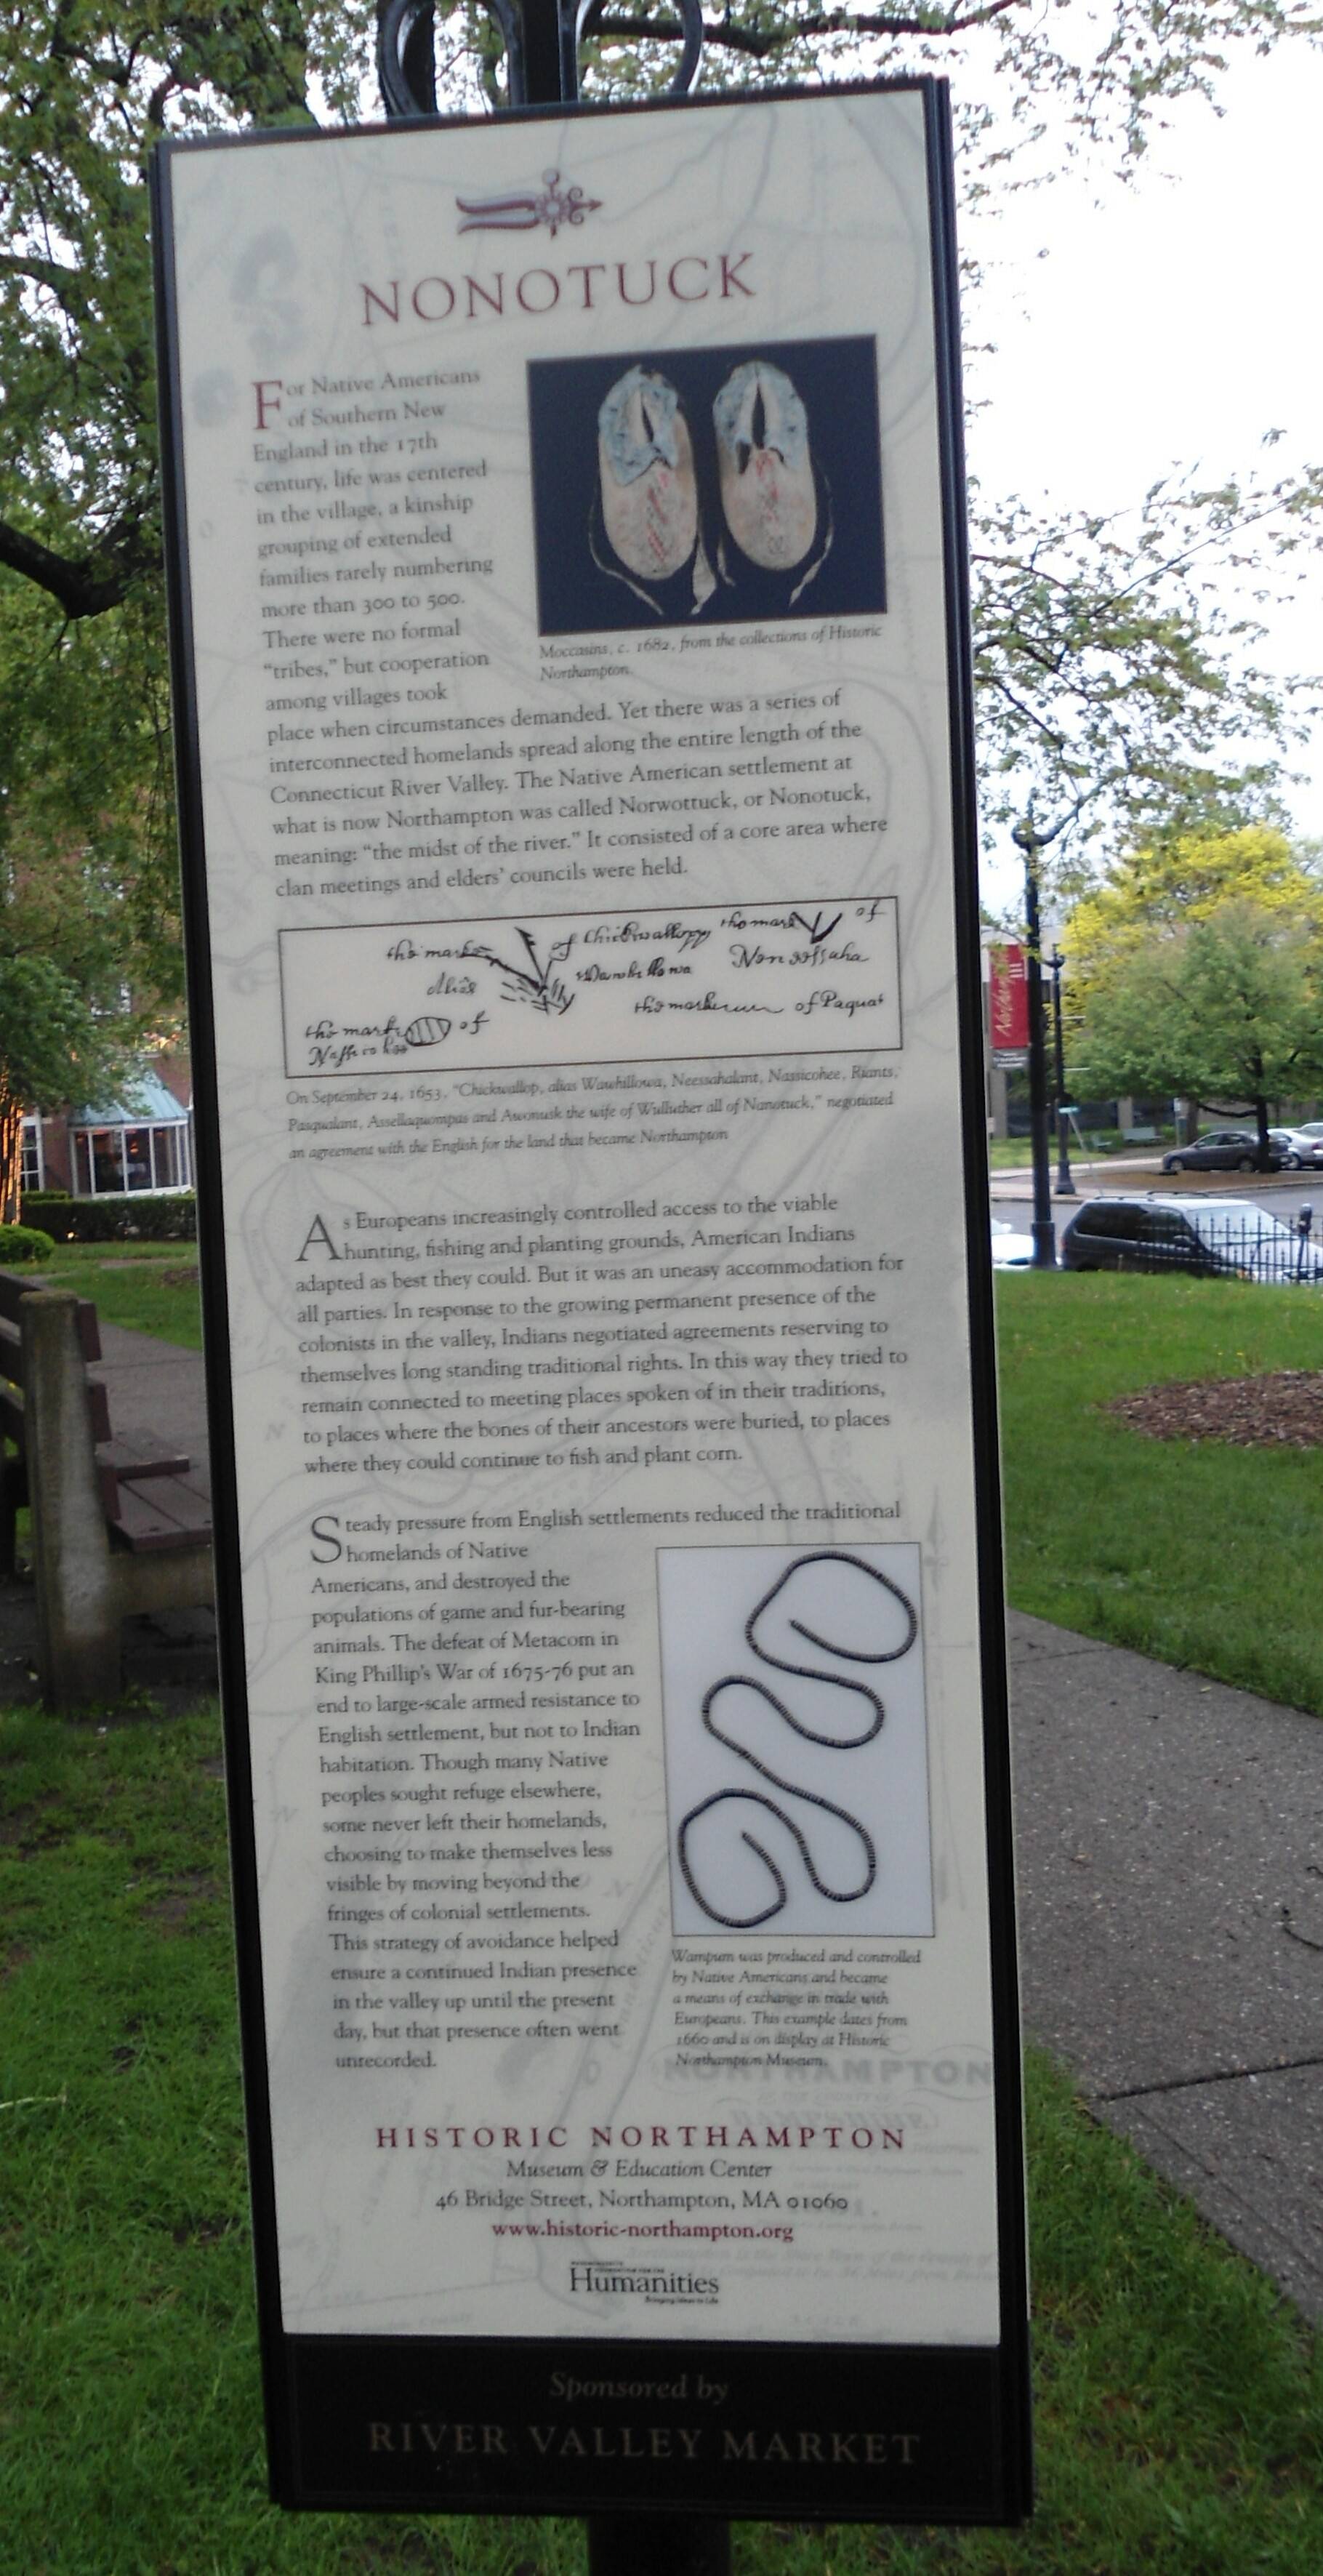 NONOTUCK
For Native Americans
of Southern New
England in the 17th
century, life was centered
in the village, a kinship
grouping of extended
families rarely numbering
more than 300 to 500.
There were no formal
“tribes,” but cooperation
among villages took
Moccasins, c. 1682, from the collections of Historic
Northampton.
place when circumstances demanded. Yet there was a series of
interconnected homelands spread along the entire length of the
Connecticut River Valley. The Native American settlement at
what is now Northampton was called Norwottuck, or Nonotuck,
meaning: “the midst of the river.” It consisted of a core area where
clan meetings and elders’ councils were held.
the marke of Chickwallopp the marke of
alias Wawhillowa
the marke of Paquat
the marke of
On September 24, 1653, “Chickwallop, alias Wawhillowa, Neessahalant, Nassicohee, Riants,
Pasqualant, Assellaquompas and Awonusk the wife of Wulluther all of Nanotuck,” negotiated
an agreement with the English for the land that became Northampton
As Europeans increasingly controlled access to the viable
hunting, fishing and planting grounds, American Indians
adapted as best they could. But it was an uneasy accommodation for
all parties. In response to the growing permanent presence of the
colonists in the valley, Indians negotiated agreements reserving to
themselves long standing traditional rights. In this way they tried to
remain connected to meeting places spoken of in their traditions,
to places where the bones of their ancestors were buried, to places
where they could continue to fish and plant corn.
Steady pressure from English settlements reduced the traditional
homelands of Native
Americans, and destroyed the
populations of game and fur-bearing
animals. The defeat of Metacom in
King Phillip's War of 1675-76 put an
end to large-scale armed resistance to
English settlement, but not to Indian
habitation. Though many Native
peoples sought refuge elsewhere,
some never left their homelands,
choosing to make themselves less
visible by moving beyond the
fringes of colonial settlements.
This strategy of avoidance helped
ensure a continued Indian presence
in the valley up until the present
day, but that presence often went
unrecorded.
Wampum was produced and controlled
by Native Americans and became
a means of exchange in trade with
Europeans. This example dates from
1660 and is on display at Historic
Northampton Museum.
NORTHAMPTON
HISTORIC NORTHAMPTON
Museum & Education Center
46 Bridge Street, Northampton, MA 01060
www.historic-northampton.org
Humanities
Bringing Ideas to Life
Sponsored by
RIVER VALLEY MARKET